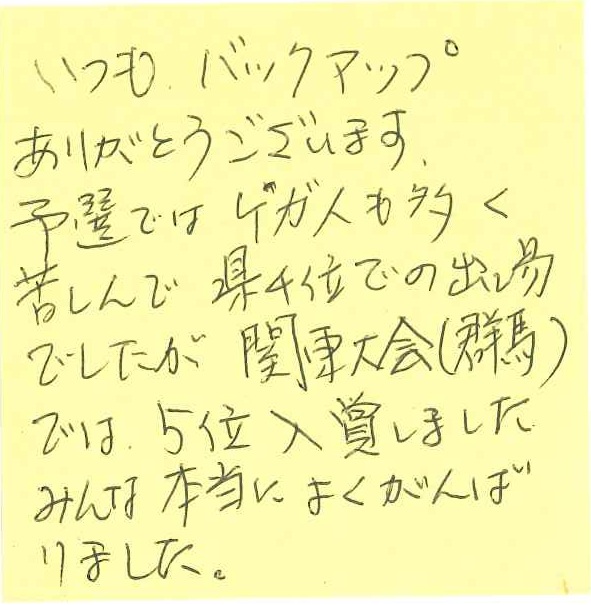 いつも、バックアップ
ありがとうございます。
予選ではケガ人も多く
苦しんで 県4位での出場
でしたが 関東大会(群馬)
では、5位入賞しました
みんな本当によくがんば
りました。